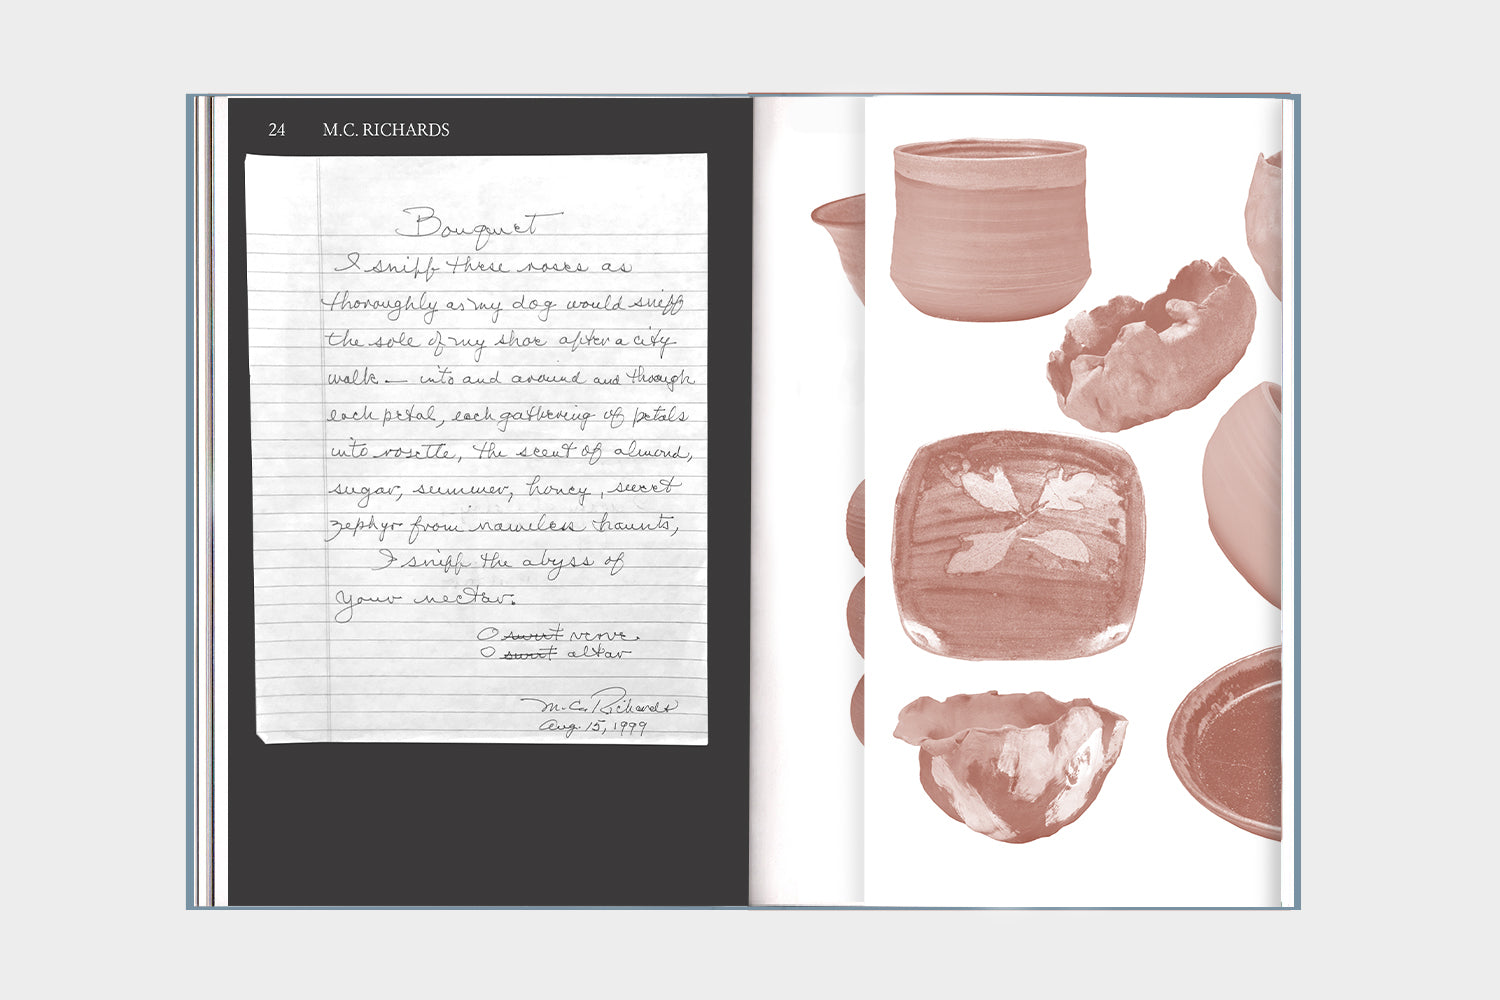 24 M.C. RICHARDS
Bouquet
I sniff these roses as
thoroughly as my dog would sniff
the sole of my shoe after a city
walk — into and around and through
each petal, each gathering of petals
into rosette, the scent of almond,
sugar, summer, honey, sweet
zephyr from nameless haunts,
I sniff the abyss of
your nectar.
O sweet nerve.
O sweet altar
M.C. Richards
Aug. 15, 1999